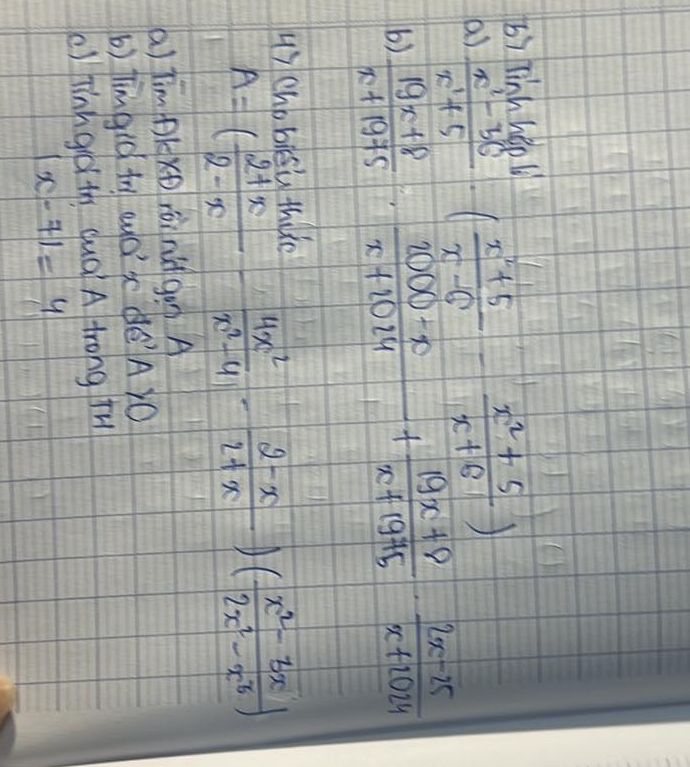 b) Tính hợp lí
a) x² - 36 / x² + 5 · ( x² + 5 / x - 6 - x² + 5 / x + 6 )
b) 19x + 8 / x + 1975 · 2000 - x / x + 2024 + 19x + 8 / x + 1975 · 2x - 25 / x + 2024
4) Cho biểu thức
A = ( 2 + x / 2 - x - 4x² / x² - 4 - 2 - x / 2 + x ) ( x² - 3x / 2x² - x³ )
a) Tìm ĐKXĐ rồi rút gọn A
b) Tìm giá trị của x để A > 0
c) Tính giá trị của A trong TH
|x - 7| = 4